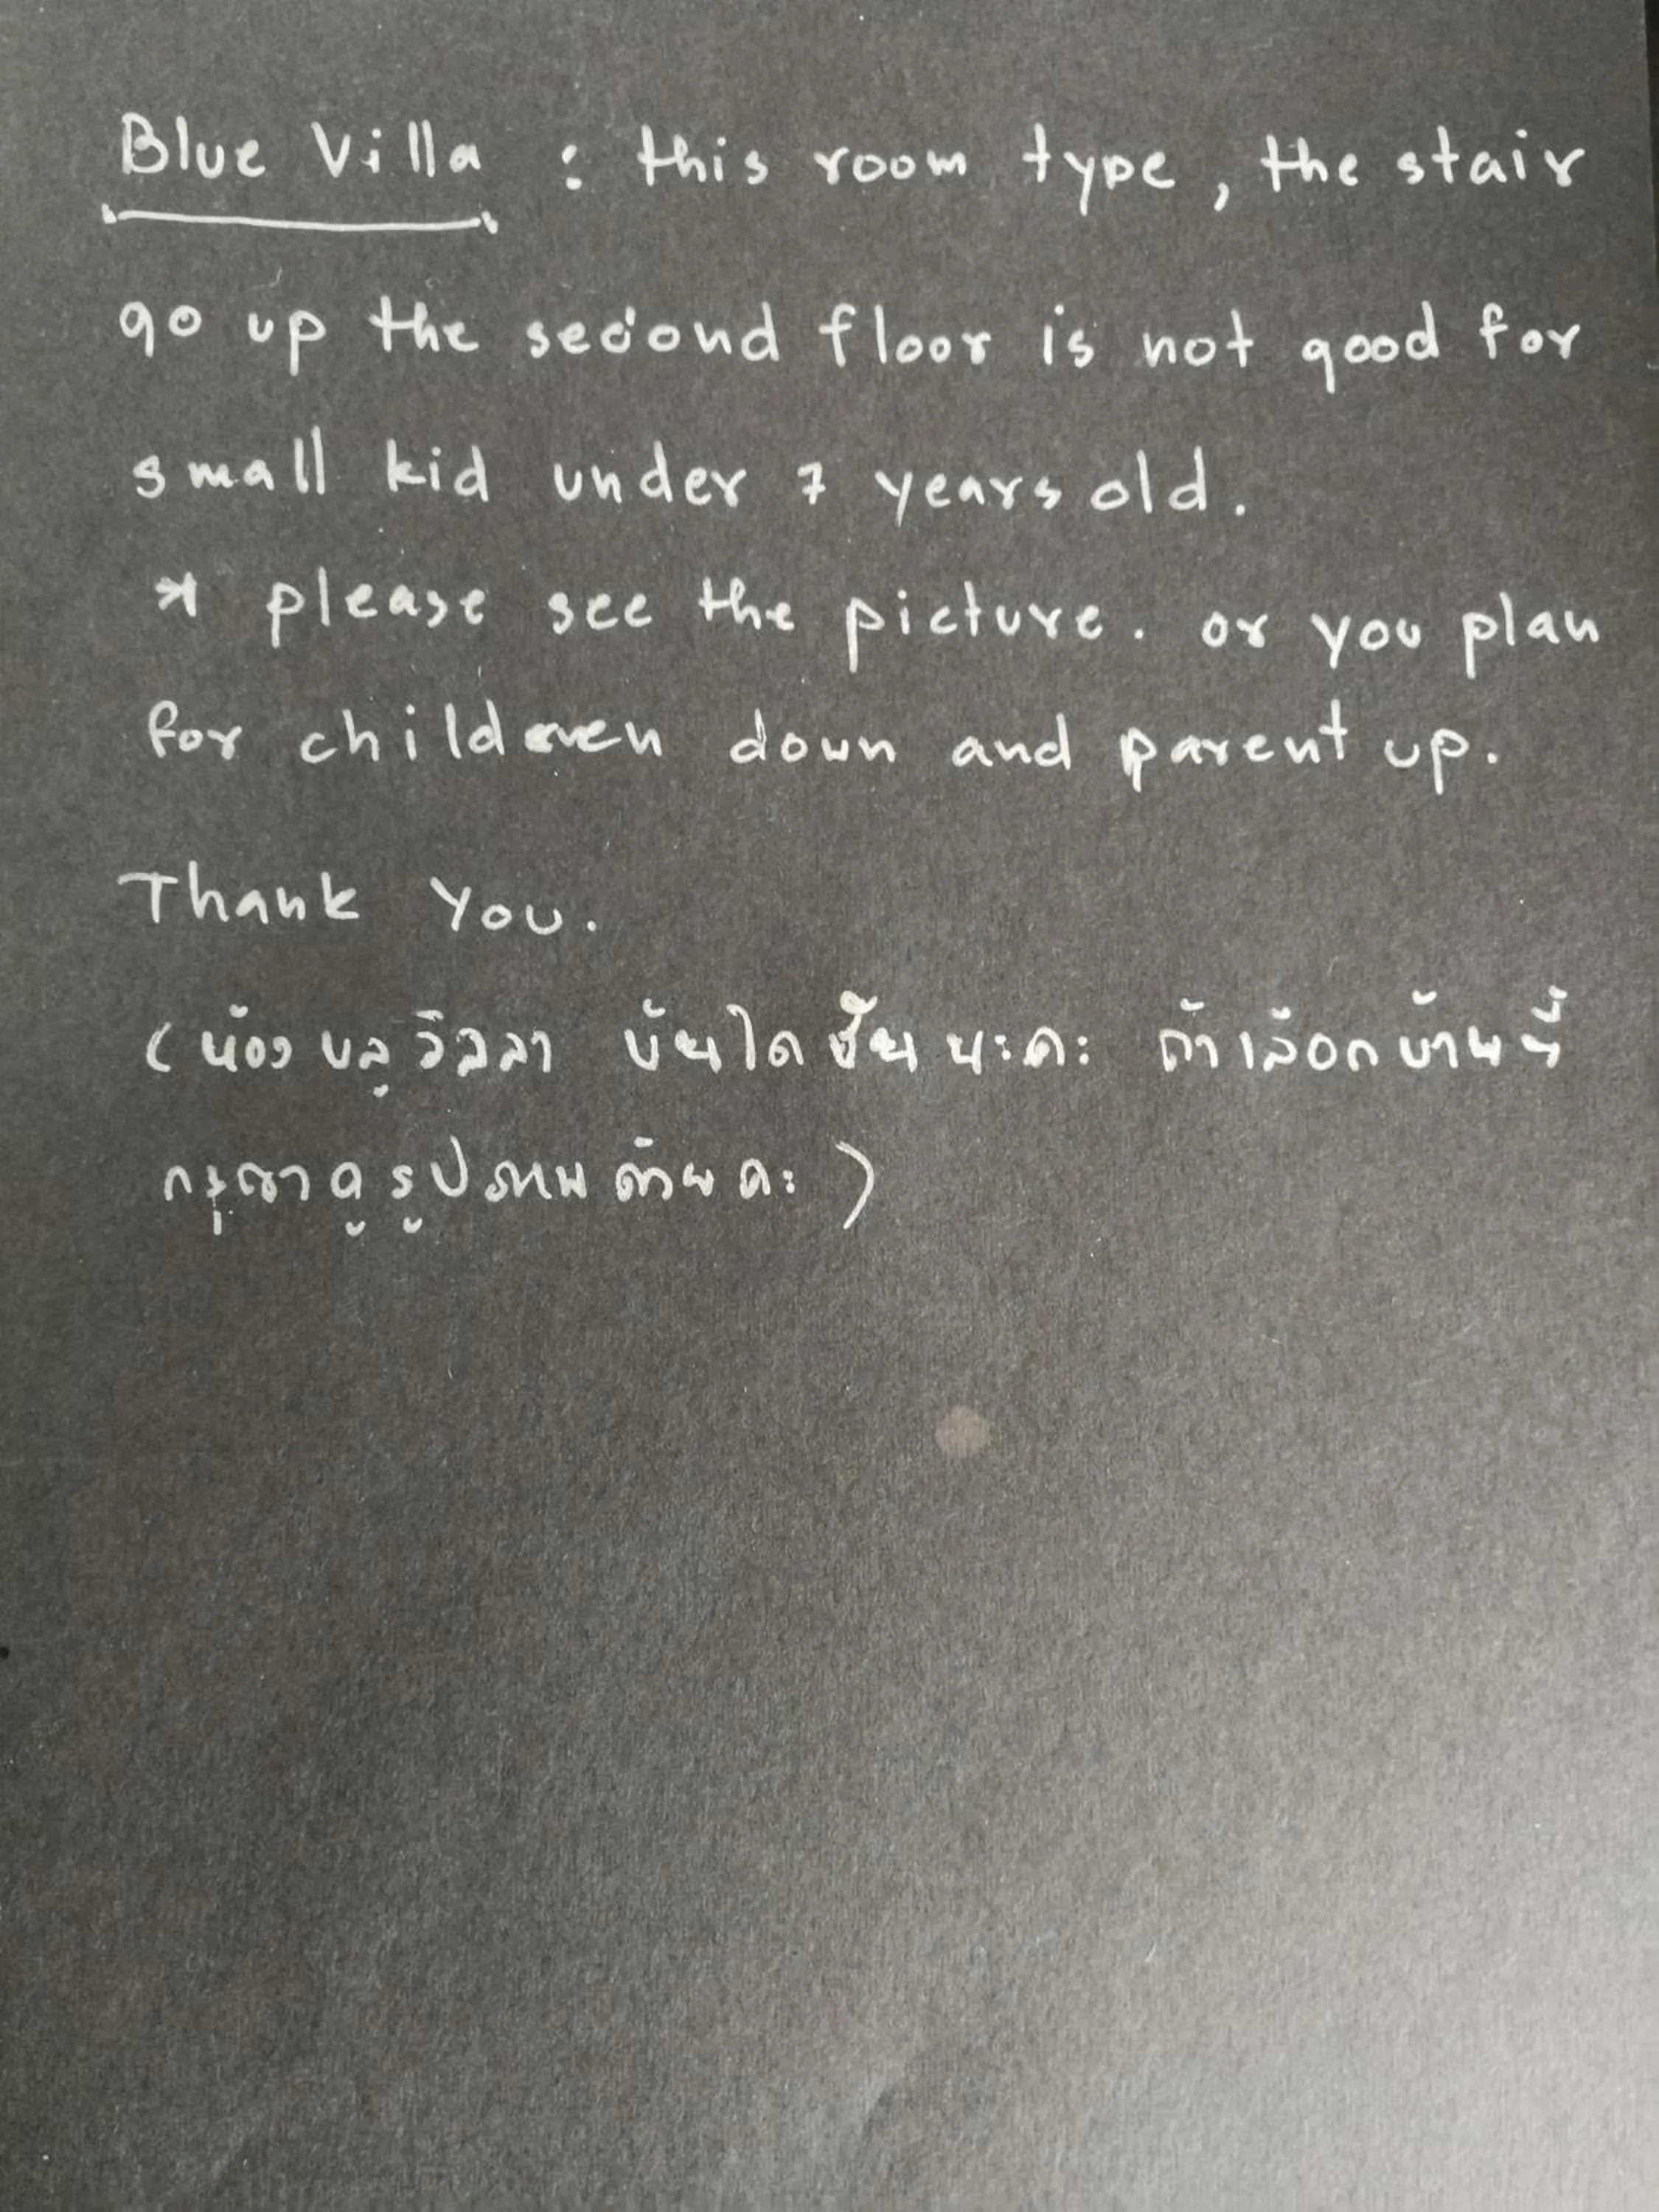 Blue Villa : this room type, the stair
go up the second floor is not good for
small kid under 7 years old.
* please see the picture. or you plan
for children down and parent up.
Thank You.
(ห้อง บลูวิลลา บันได ชัน นะคะ ถ้าเลือกบ้านนี้
กรุณาดูรูปภาพด้วยคะ)